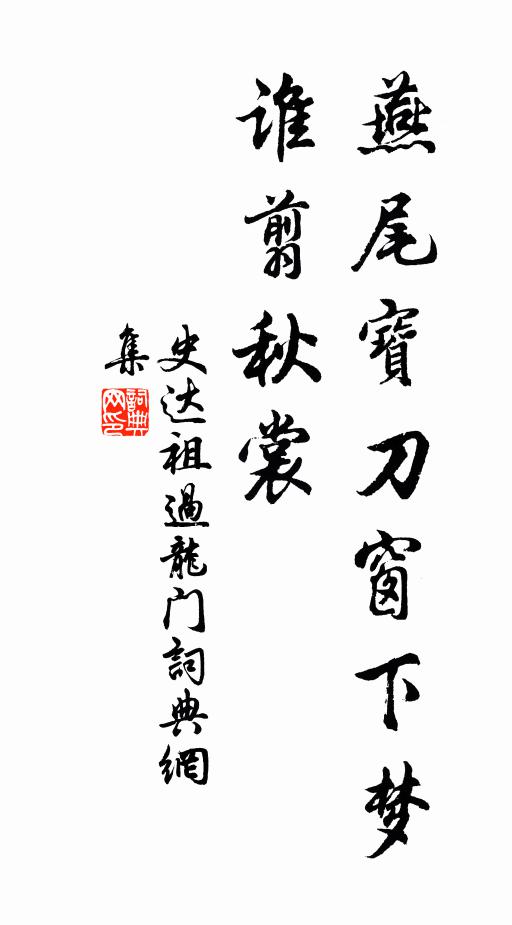 燕尾寶刀窗下梦
谁翦秋裳
史达祖過龍门詞典網
集
詞典
网印